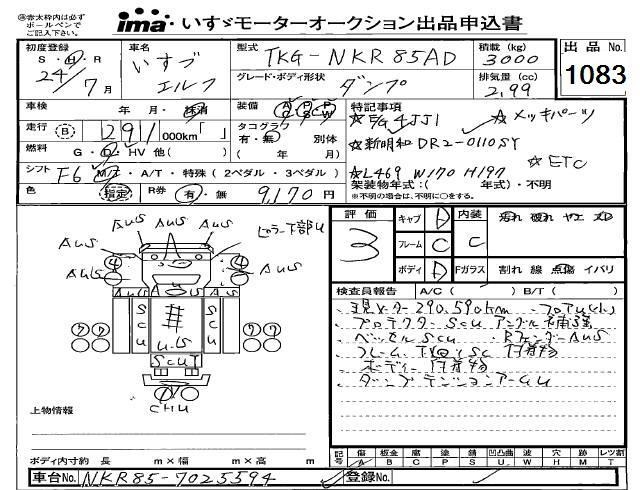 ㊟赤太枠内は必ず
ボールペンで
ご記入下さい。
ima いすゞモーターオークション出品申込書
初度登録 車名 型式 TKG-NKR85AD 積載(kg) 出品No.
S・H・R いすゞ 3000
24/7月 エルフ グレード・ボディ形状 ダンプ 排気量(cc) 2,99 1083
車検 年・月・抹消 装備 AC PS PW 特記事項
走行 B 291,000km「 」 タコグラフ 有・無 別体 ☆E/G 4JJ1 ☆メッキパーツ
燃料 G・D・HV 他( ) ( 年 月) ☆新明和 DR2-0110SY
シフト F6 M/T・A/T・特殊(2ペダル・3ペダル) ☆L469 W170 H197 ☆ETC
色 指定 R券 有・無 9,170円 架装物年式:( 年式)・不明
※不明の場合は、不明に○をする。
評価 3 キャブ D 内装 C 汚れ 破れ ヤケ スレ
フレーム C
ボディ D Fガラス 割れ 線 点傷 イバリ
AUS AUS ピラー下部U
AUS AUS
④ ④
AUS U AUS
SCU SCU
U.S
SCUT
CHU
検査員報告 A/C( ) B/T( )
現メーター 290,590km フロアU(小)
プロテクターSCU アングル補強
ベッセルSCU RフェンダーAUS
フレーム 下回りSC 付着物
ボディー付着物
ダンプテンションアームU
上物情報
記号 傷 板金 腐 塗 錆 凹凸曲 波 穴 跡 レツ割
A B C P S U W H M T
ボディ内寸約 長 m×幅 m×高 m
車台No. NKR85-7025594 登録No.